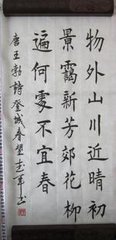 物外山川近晴初
景靄新芳郊花柳
遍何處不宜春
唐王勃詩登城春望 志軍書